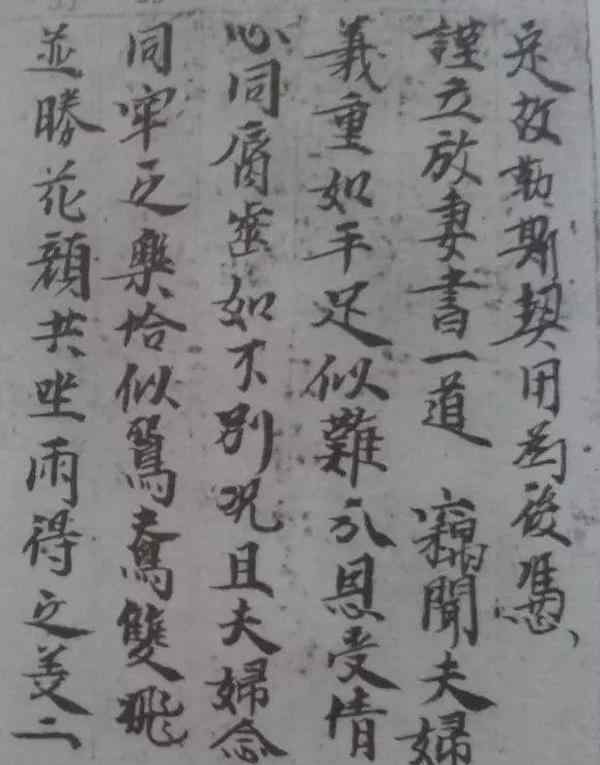 定故勒斯契用為後馮
謹立放妻書一道 竊聞夫婦
義重如手足似難分恩愛情
心同唇齒如不別況且夫婦念
同牢之樂恰似鴛鴦雙飛
並勝花顏共坐兩得之美二